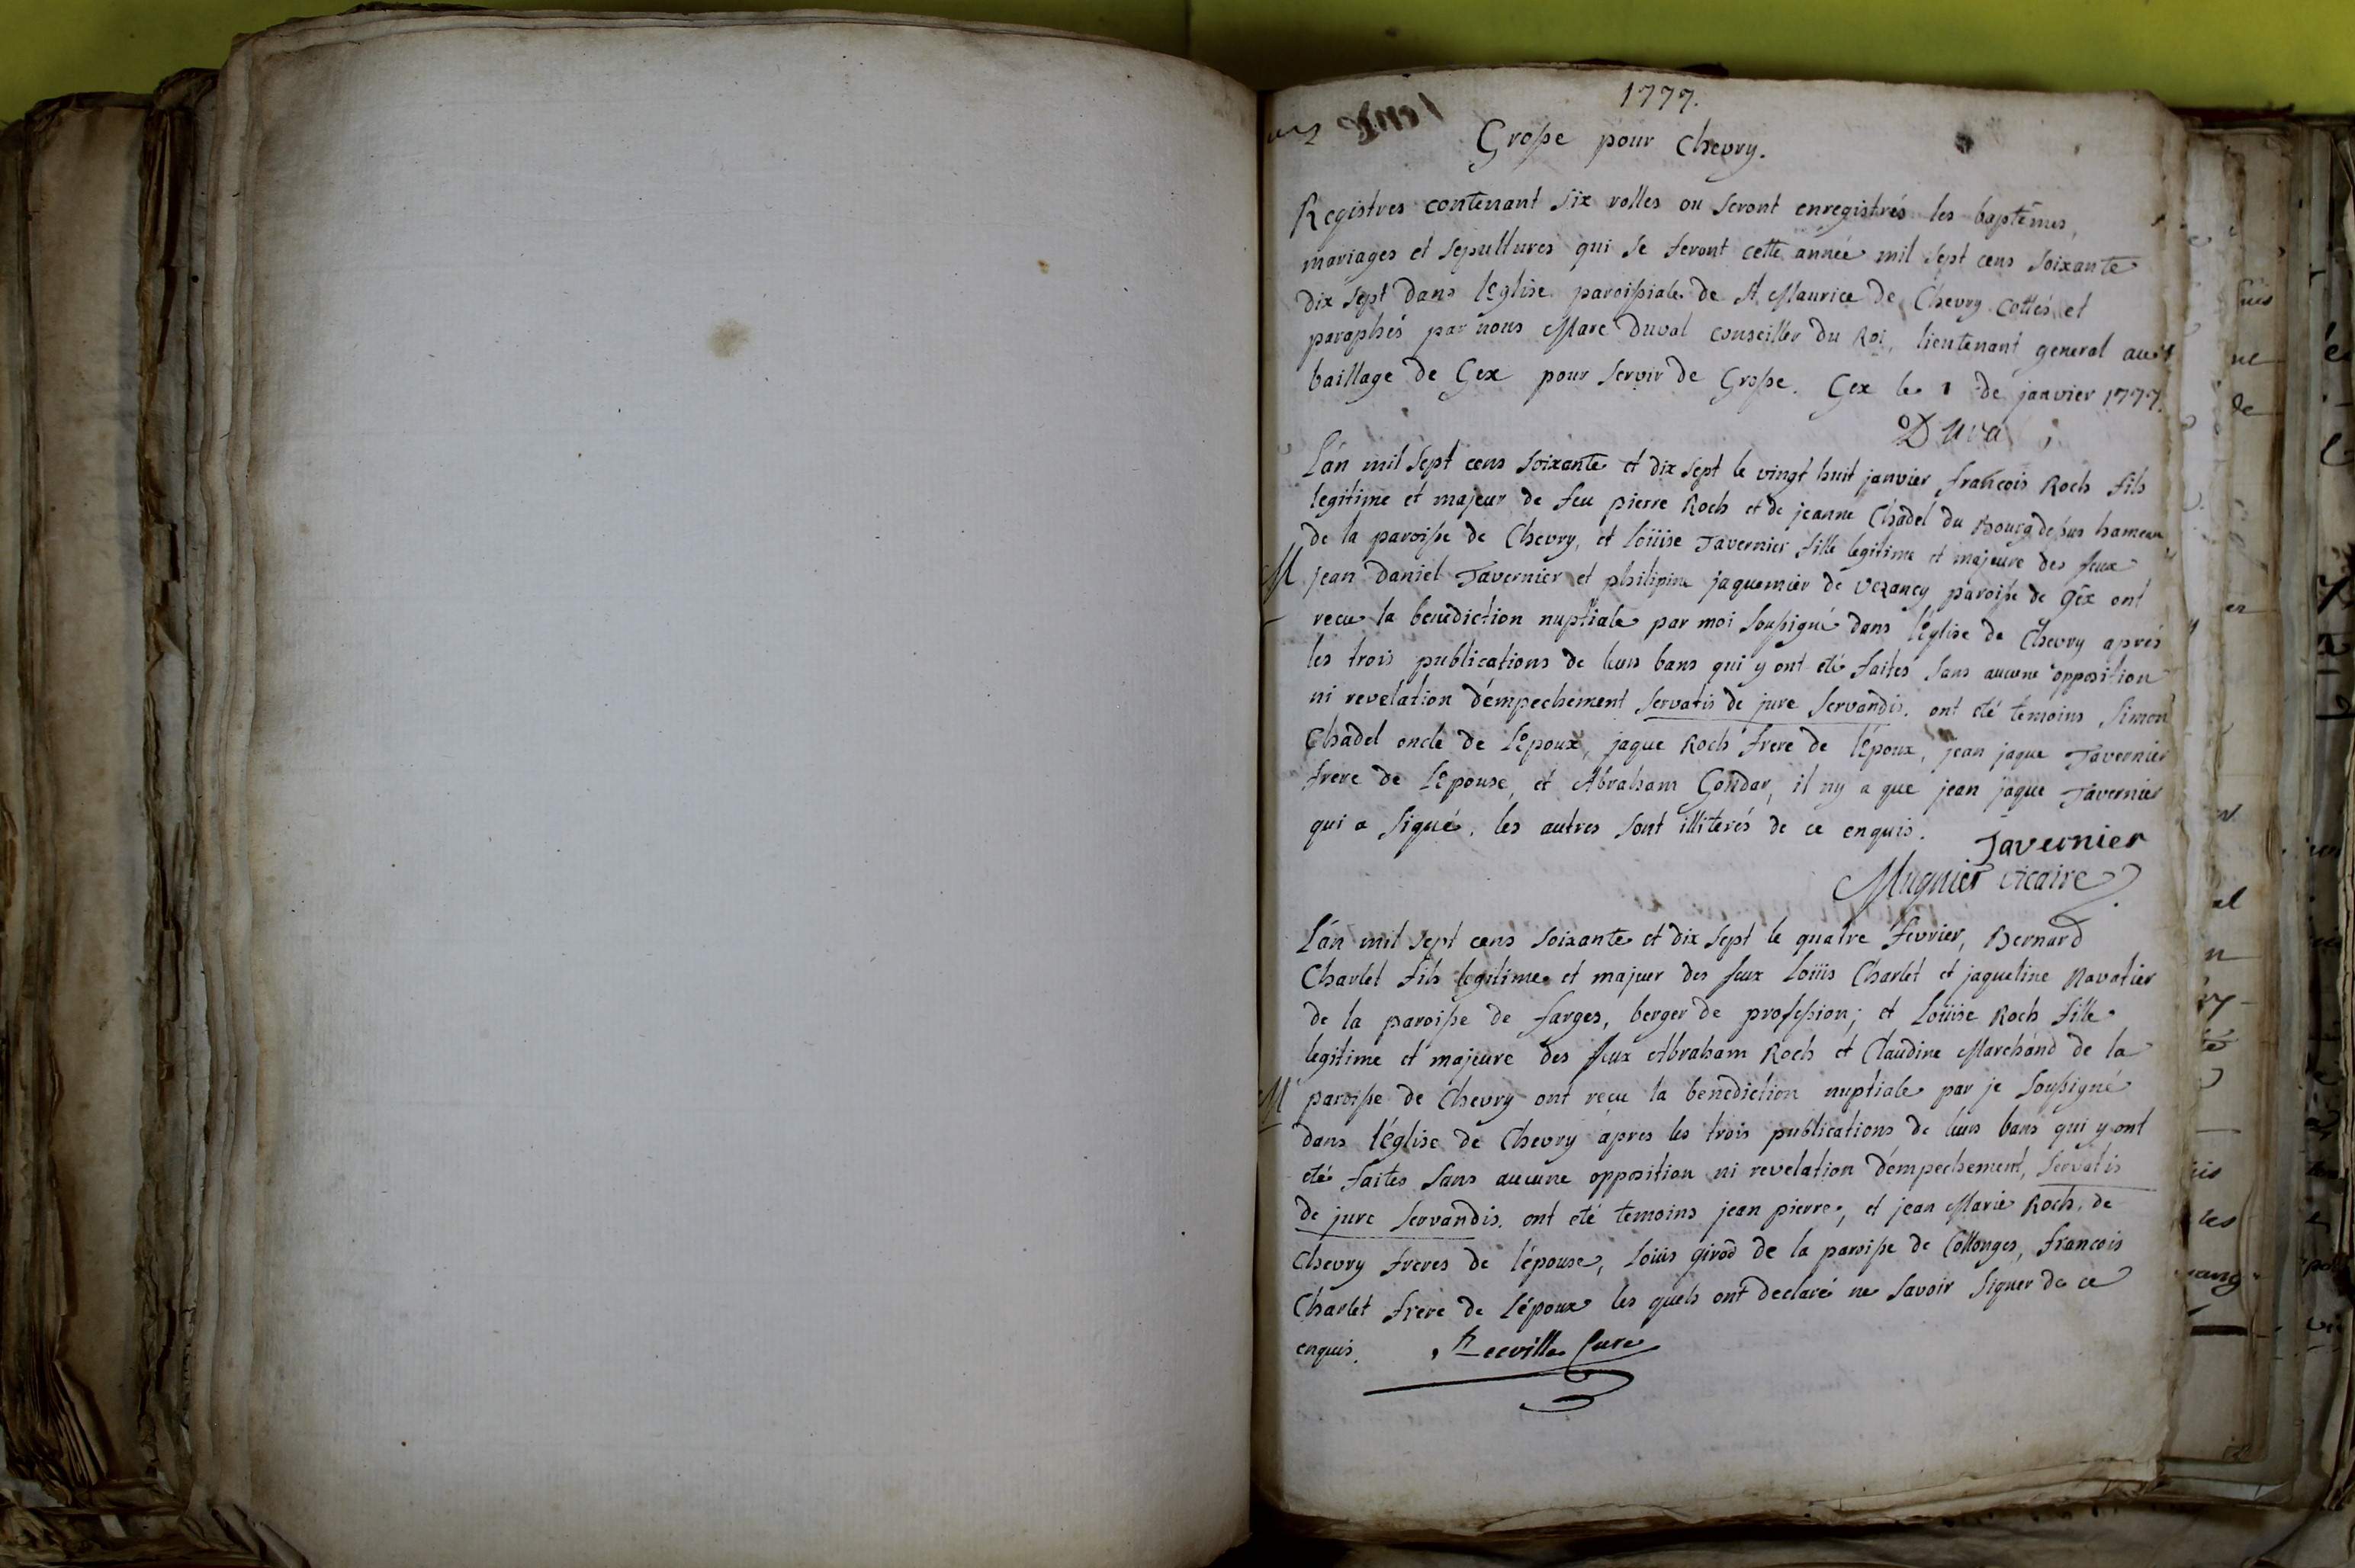 1777.
Grosse pour Chevry.
Registres contenant six rolles ou seront enregistrés les baptêmes,
mariages et sepultures qui se feront cette année mil sept cens soixante
dix sept dans lEglise paroissiale de St Maurice de Chevry cottés et
paraphés par nous Marc Duval conseiller du Roi, lieutenant general au
baillage de Gex pour servir de Grosse. Gex le 1 de janvier 1777.
Duval
L'an mil sept cens soixante et dix sept le vingt huit janvier francois Roch fils
legitime et majeur de feu pierre Roch et de jeanne Chadel du Bourg dessus hameau
de la paroisse de Chevry, et Loüise Tavernier fille legitime et majeure des feux
M jean Daniel Tavernier et philipine jaquemier de vezancy paroisse de Gex ont
recue la benediction nuptiale par moi soussigné dans l'Eglise de Chevry aprés
les trois publications de leurs bans qui y ont eté faites sans aucune opposition
ni revelation d'empechement servatis de jure servandis. ont eté temoins, simon
Chadel oncle de l'Epoux, jaque Roch frere de l'époux, jean jaque Tavernier
frere de l'Epouse, et Abraham Gondar, il ny a que jean jaque Tavernier
qui a signé, les autres sont illiterés de ce enquis.
Tavernier
Mugnier vicaire
L'an mil sept cens soixante et dix sept le quatre fevrier, Bernard
Charlet fils legitime et majeur des feux Loüis Charlet et jaqueline Ravatier
de la paroisse de farges, berger de profession; et Loüise Roch fille
legitime et majeure des feux Abraham Roch et Claudine Marchand de la
M paroisse de Chevry ont reçu la benediction nuptiale par je soussigné
dans l'Eglise de Chevry apres les trois publications de leurs bans qui y ont
eté faites sans aucune opposition ni revelation d'empechement, servatis
de jure servandis. ont eté temoins jean pierre, et jean Marie Roch, de
Chevry freres de l'épouse, Loüis girod de la paroisse de Collonges, francois
Charlet frere de l'époux les quels ont declaré ne savoir signer de ce
enquis. Curé